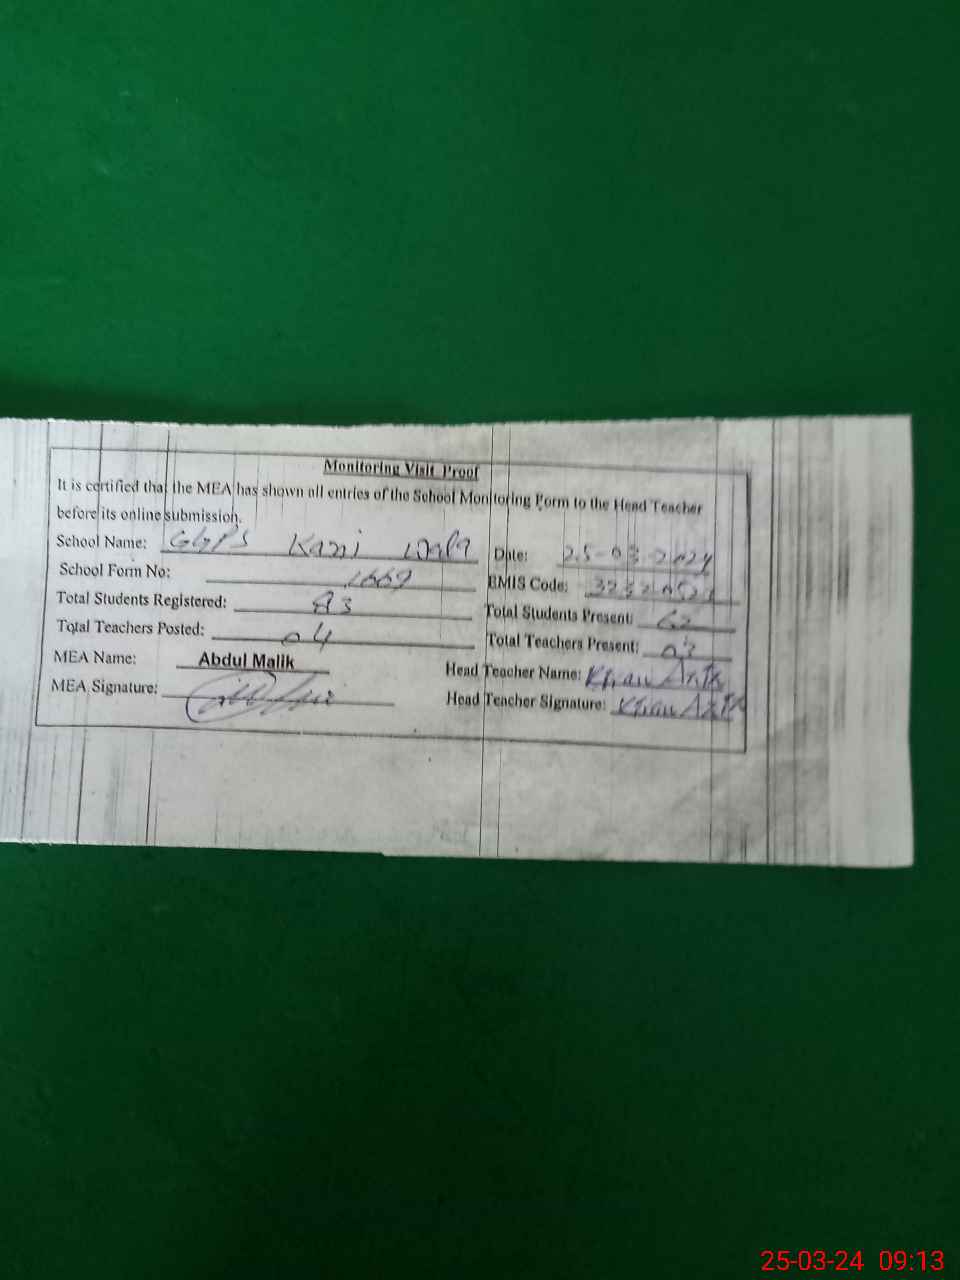 Monitoring Visit Proof
It is certified that the MEA has shown all entries of the School Monitoring Form to the Head Teacher
before its online submission.
School Name: GGPS Kazi Wala Date: 25-03-2024
School Form No: 1669 EMIS Code:
Total Students Registered: 83 Total Students Present: 62
Total Teachers Posted: 04 Total Teachers Present: 03
MEA Name: Abdul Malik Head Teacher Name: Khan
MEA Signature: Head Teacher Signature: Khan
25-03-24 09:13